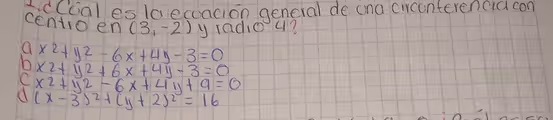 1. ¿Cúal es la ecuación general de una circunferencia con
centro en (3,-2) y radio 4?
a x2+y2-6x+4y-3=0
b x2+y2+6x+4y-3=0
c x2+y2-6x+4y+9=0
d (x-3)²+(y+2)²=16